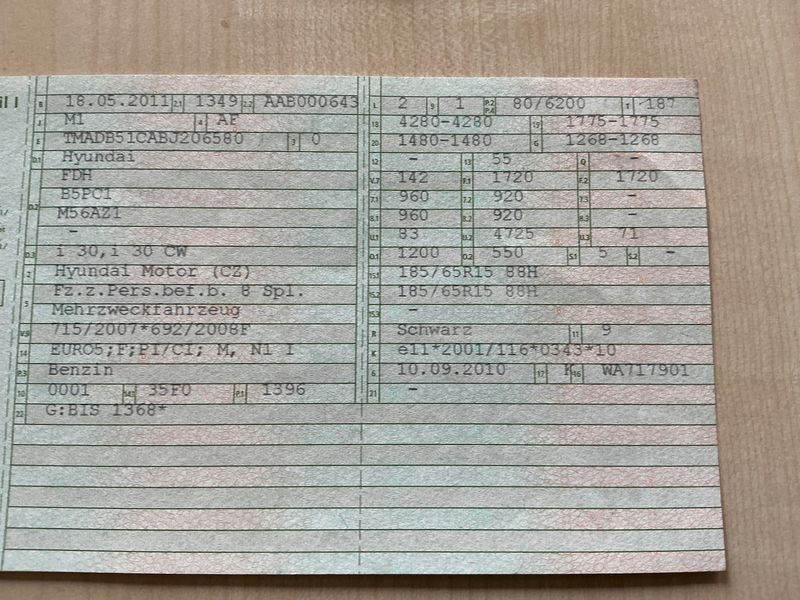 B 18.05.2011 2.1 1349 2.2 AAB000643
J M1 4 AF
E TMADB51CABJ206580 3 0
D.1 Hyundai
FDH
D.2 B5PC1
M56AZ1
-
D.3 i 30,i 30 CW
2 Hyundai Motor (CZ)
5 Fz.z.Pers.bef.b. 8 Spl.
Mehrzweckfahrzeug
V.9 715/2007*692/2008F
14 EURO5;F;PI/CI; M, N1 I
P.3 Benzin
10 0001 14.1 35F0 P.1 1396
22 G:BIS 1368*
L 2 9 1 P.2 P.4 80/6200 T 187
18 4280-4280 19 1775-1775
20 1480-1480 G 1268-1268
12 - 13 55 Q -
V.7 142 F.1 1720 F.2 1720
7.1 960 7.2 920 7.3 -
8.1 960 8.2 920 8.3 -
U.1 83 U.2 4725 U.3 71
O.1 1200 O.2 550 S.1 5 S.2 -
15.1 185/65R15 88H
15.2 185/65R15 88H
15.3 -
R Schwarz 11 9
K e11*2001/116*0343*10
6 10.09.2010 17 K 16 WA717901
21 -